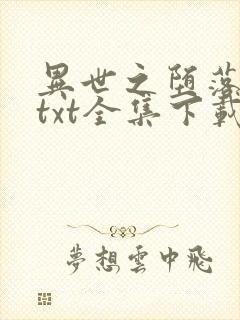 異世之堕落
txt全集下載
夢想雲中飛